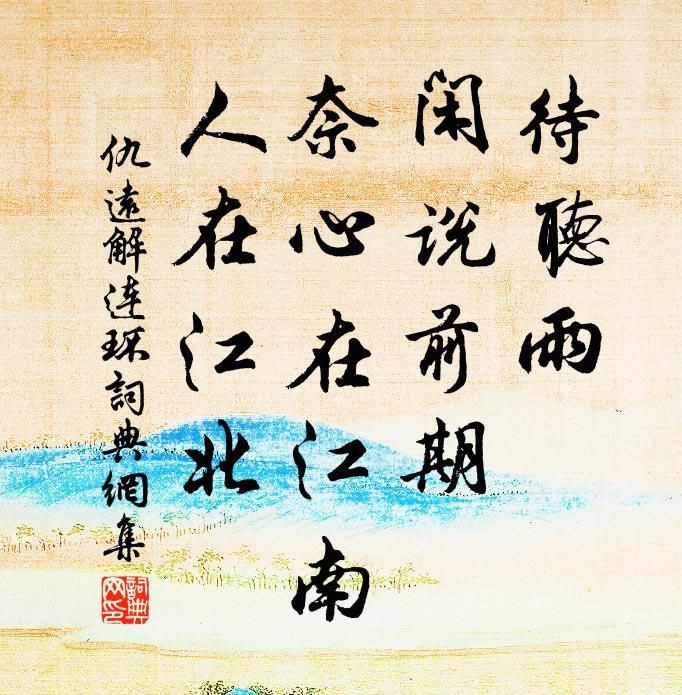 待聽雨
閑說前期
奈心在江南
人在江北
仇遠解連环詞典網集
詞典